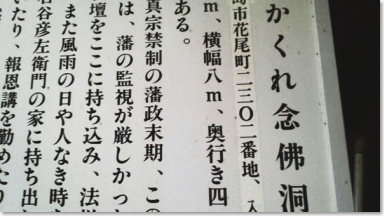 かくれ念佛洞
島市花尾町二三〇二番地、入
m、横幅八m、奥行き四
ある。
真宗禁制の藩政末期、この
は、藩の監視が厳しかっ
壇をここに持ち込み、法
また風雨の日や人なき時
岩谷彦左衛門の家に持ち出
いたり、報恩講を勤めたり